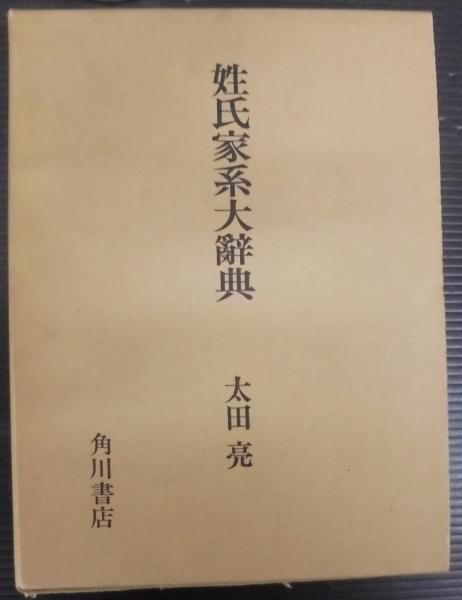 姓氏家系大辭典
太田亮
角川書店